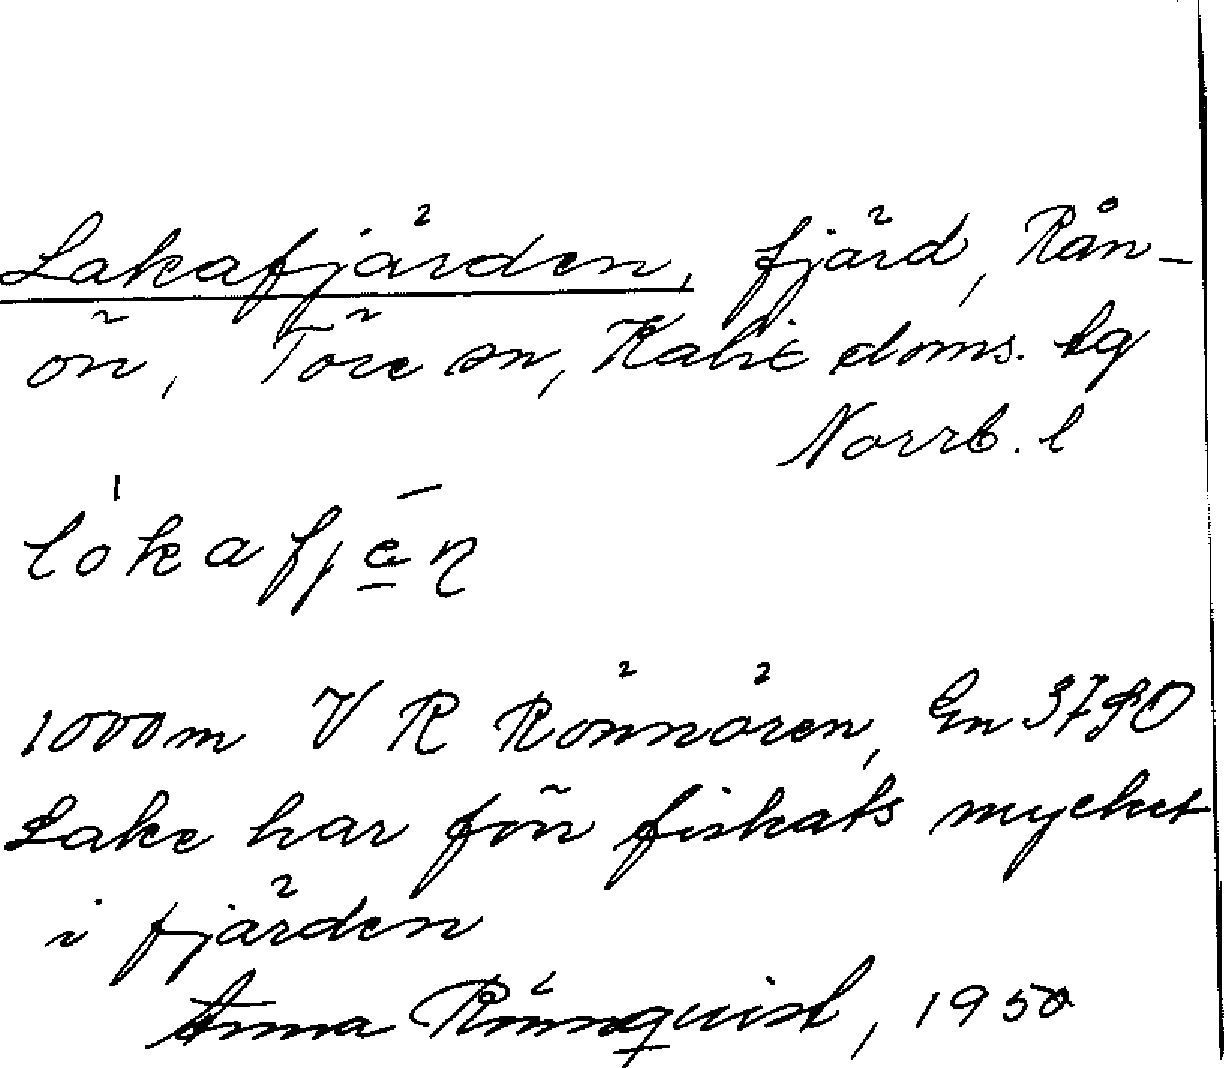 Lakafjärden, fjärd, Rån-
ön, Töre sn, Kalix doms. lg
Norrb. l
lòkafjēṇ
1000 m V R Rönnören, En 3780
Lake har förr fiskats mycket
i fjärden
Anna Rönnquist, 1950